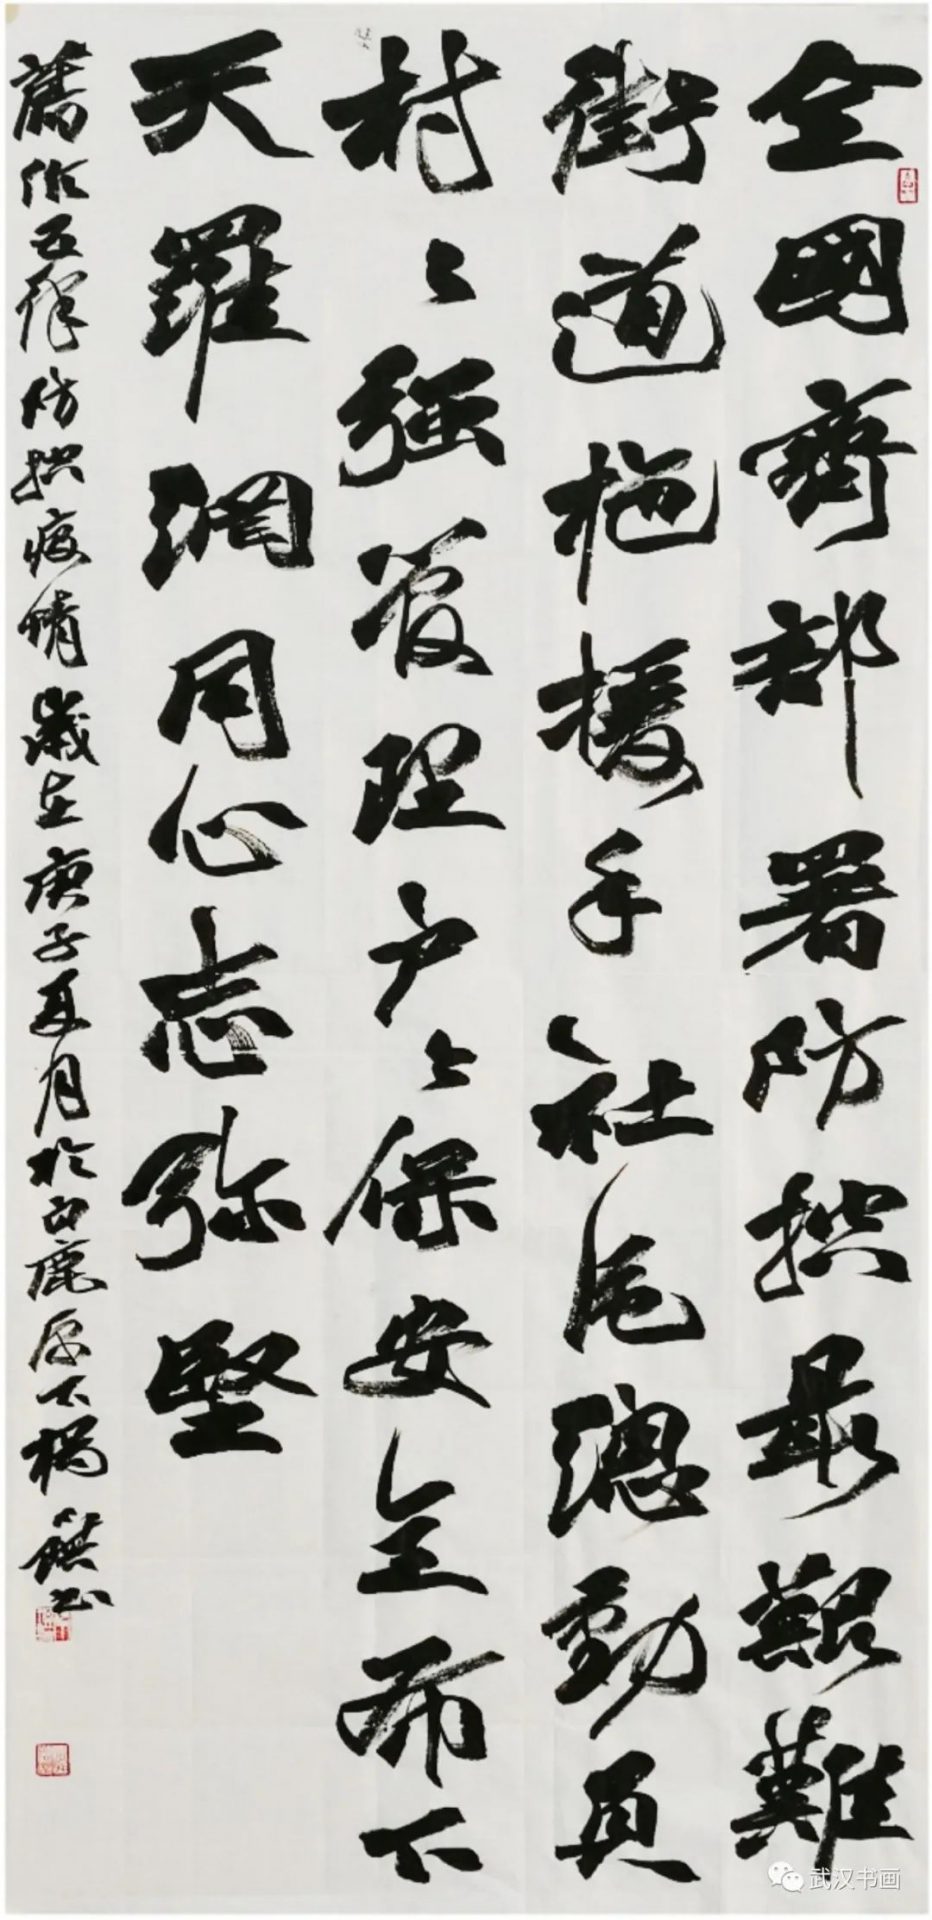 全國齊部署防控最艱難
街道施援手社区總動員
村々强管理户々保安全布下
天羅網同心志弥堅
舊作五律防控疫情歲在庚子夏月於白鹿原下楊書
武汉书画